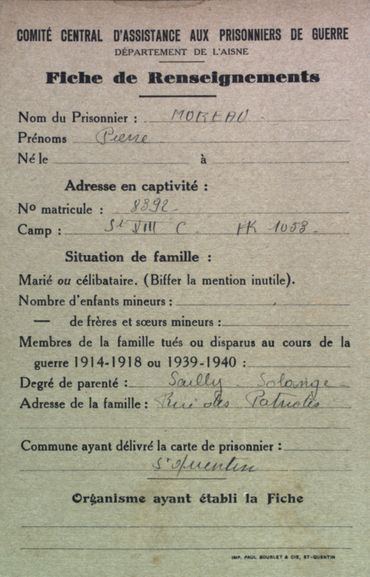 COMITÉ CENTRAL D'ASSISTANCE AUX PRISONNIERS DE GUERRE
DÉPARTEMENT DE L'AISNE
Fiche de Renseignements
Nom du Prisonnier : MOREAU
Prénoms Pierre
Né le à
Adresse en captivité :
No matricule : 8392
Camp : St VIII C. AK 1053
Situation de famille :
Marié ou célibataire. (Biffer la mention inutile).
Nombre d'enfants mineurs :
— de frères et sœurs mineurs :
Membres de la famille tués ou disparus au cours de la
guerre 1914-1918 ou 1939-1940 :
Degré de parenté : Sailly Solange
Adresse de la famille : Rue des Patriotes
Commune ayant délivré la carte de prisonnier :
St Quentin
Organisme ayant établi la Fiche
IMP. PAUL BOURLET & CIE, ST-QUENTIN